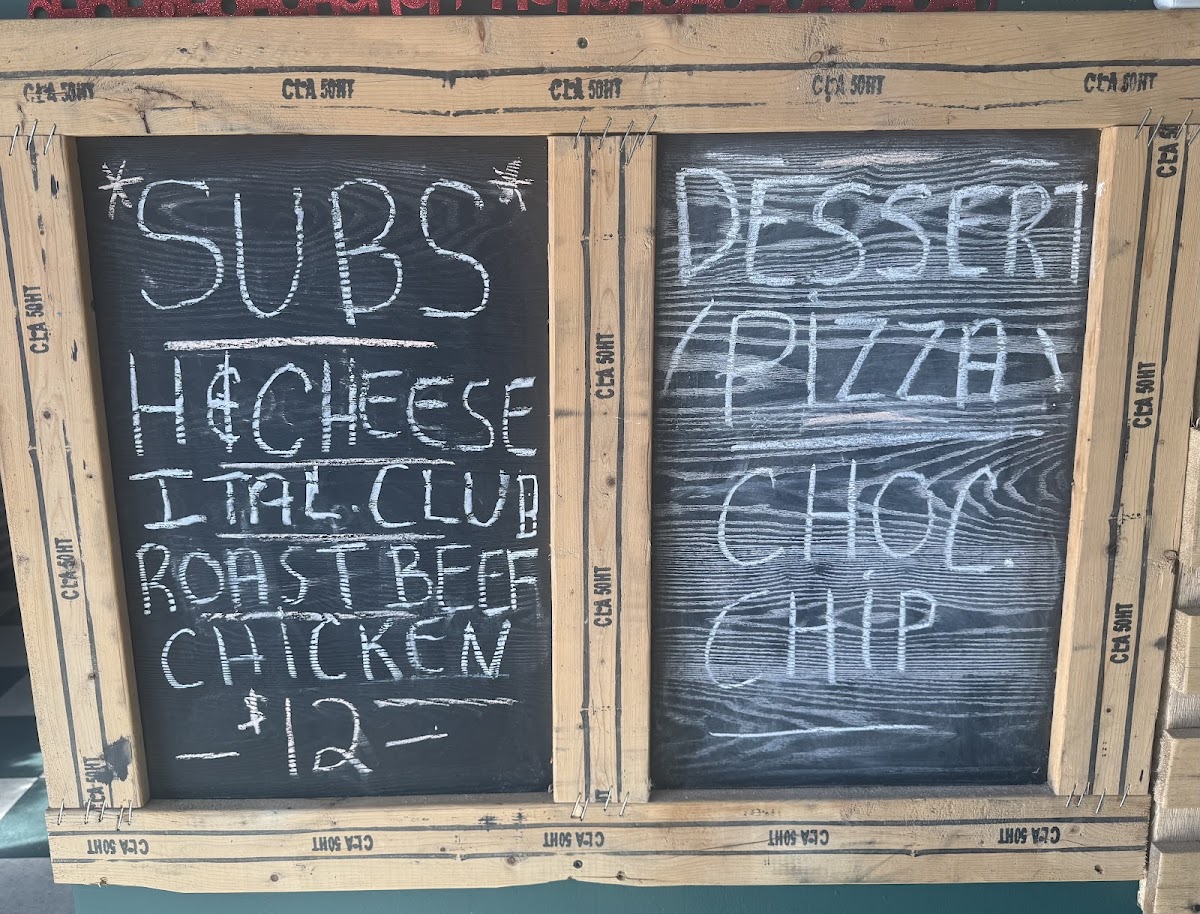 CLA 50HT CLA 50HT CLA 50HT CLA 50HT CLA 50HT
*SUBS*
H&CHEESE
ITAL. CLUB
ROAST BEEF
CHICKEN
- $12 -
DESSERT
(PIZZA)
CHOC.
CHIP
CLA 50HT
CLA 50HT
CLA 50HT
CLA 50HT
CLA 50HT
CLA 50HT
CLA 50HT
CLA 50HT CLA 50HT CLA 50HT CLA 50HT CLA 50HT